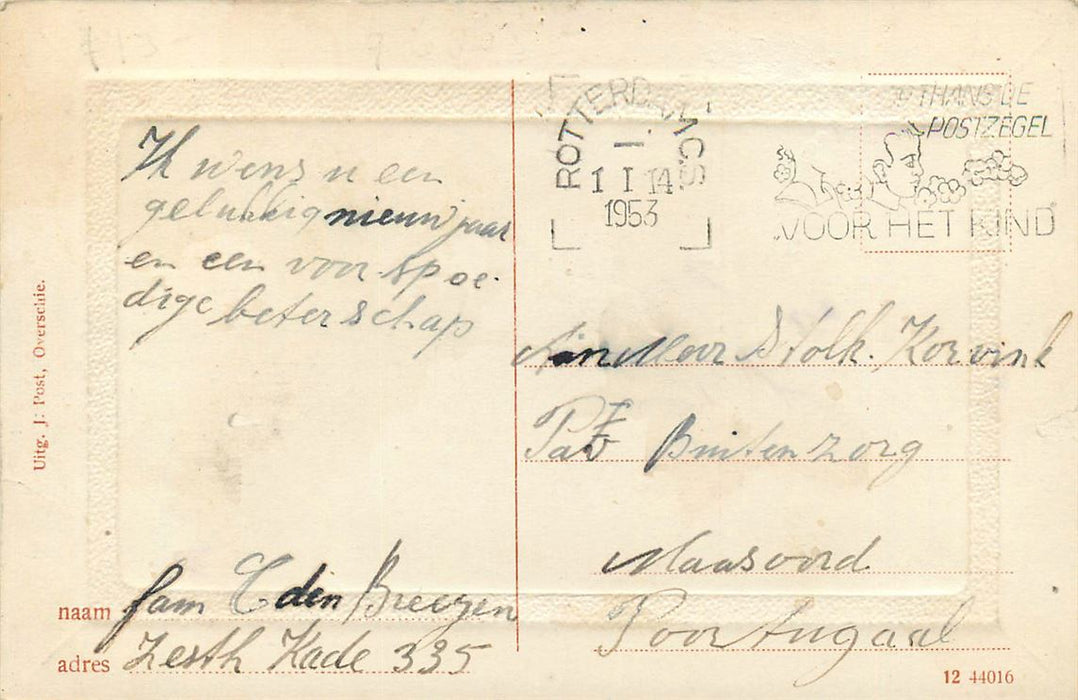 ROTTERDAM C.S
1 I 14
1953
THANS DE
POSTZEGEL
VOOR HET KIND
Ik wens u een
gelukkig nieuw jaar
en een voor spoe-
dige beterschap
fam C den Breejen
Zesth Kade 335
naam
adres
Aan Meer Stolk. Korvink
Pav Buitenzorg
Maasoord
Poortugaal
Uitg. J. Post, Overschie.
12 44016